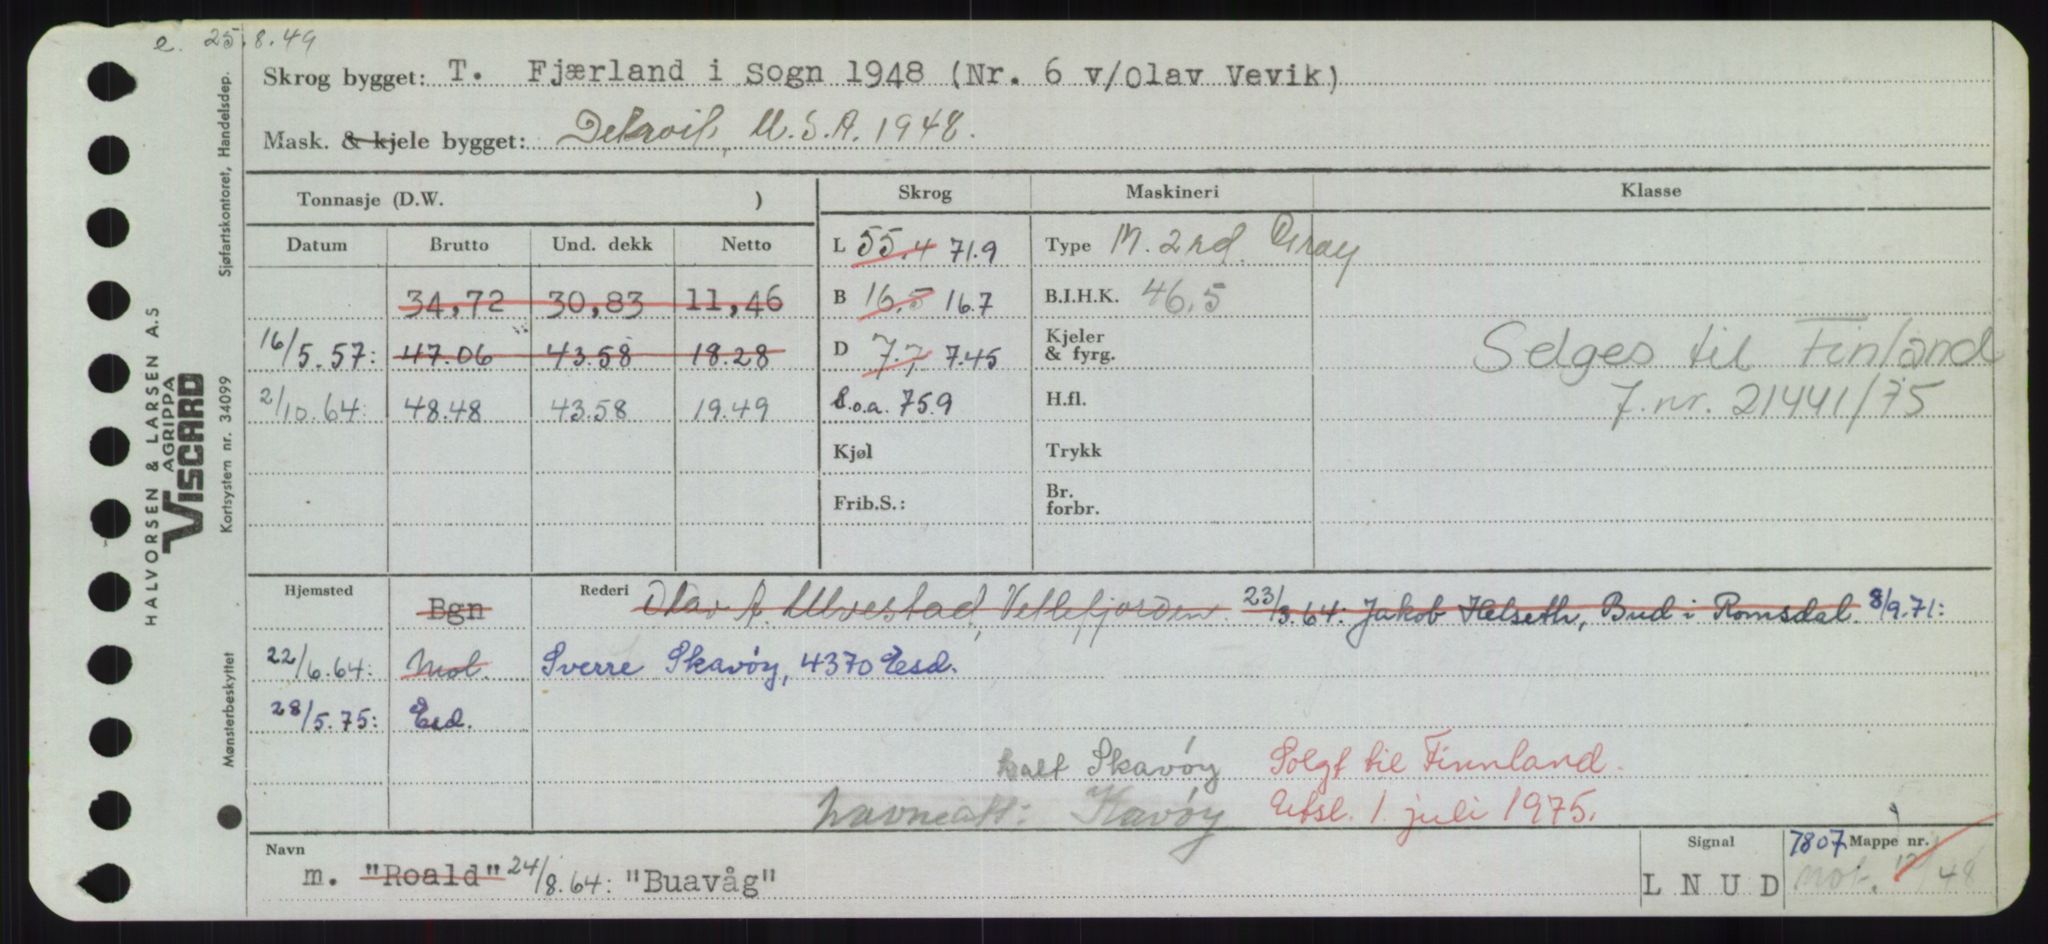 e. 25.8.49
Skrog bygget: T. Fjærland i Sogn 1948 (Nr. 6 v/Olav Vevik)
Mask. & kjele bygget: Detroit, U.S.A. 1948.
Tonnasje (D.W. )
Datum Brutto Und. dekk Netto
34,72 30,83 11,46
16/5.57: 47.06 43.58 18.28
2/10.64: 48.48 43.58 19.49
Skrog
L 55.4 71.9
B 16.5 16.7
D 7.7 7.45
l.o.a. 75.9
Kjøl
Frib.S.:
Maskineri
Type M. 2 rd. Gray
B.I.H.K. 46.5
Kjeler
& fyrg.
H.fl.
Trykk
Br.
forbr.
Klasse
Selges til Finland
J.nr. 21441/75
Hjemsted Bgn Rederi Olav A. Ulvestad, Vetlefjorden. 23/3.64: Jakob Helseth, Bud i Romsdal. 8/9.71:
22/6.64: Mol. Sverre Skavøy, 4370 Esd.
28/5.75: Esd.
kalt Skavøy Solgt til Finnland.
Skavøy Utsl. 1. juli 1975.
Navn
m. "Roald" 24/8.64: "Buavåg"
Signal
L N U D
7807 Mappe nr.
mot. 12/48
HALVORSEN & LARSEN A.S
AGRIPPA
VISCARD
Sjøfartskontoret, Handelsdep.
Kortsystem nr. 34099
Mønsterbeskyttet